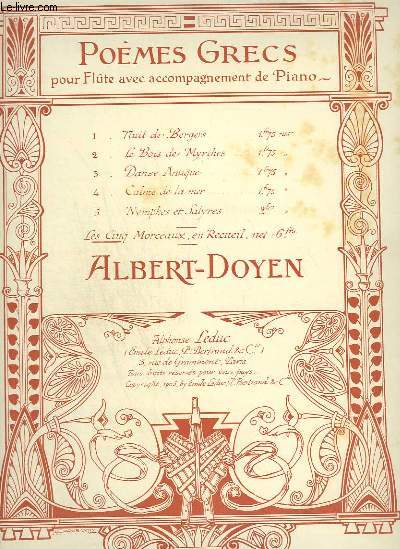 Le-livre.com
POÈMES GRECS
pour Flûte avec accompagnement de Piano
1. Nuit de Bergers 1f.75 net
2. Le Bois de Myrthes 1f.75 "
3. Danse Antique 1f.75 "
4. Calme de la mer 1f.75 "
5. Nymphes et Satyres "
Les Cinq Morceaux, en Recueil, net : 6 frs
ALBERT-DOYEN
Alphonse Leduc
(Emile Leduc, P. Bertrand & Cie)
3, rue de Grammont, Paris
Tous droits réservés pour tous pays.
Copyright, by Emile Leduc, P. Bertrand & Cie